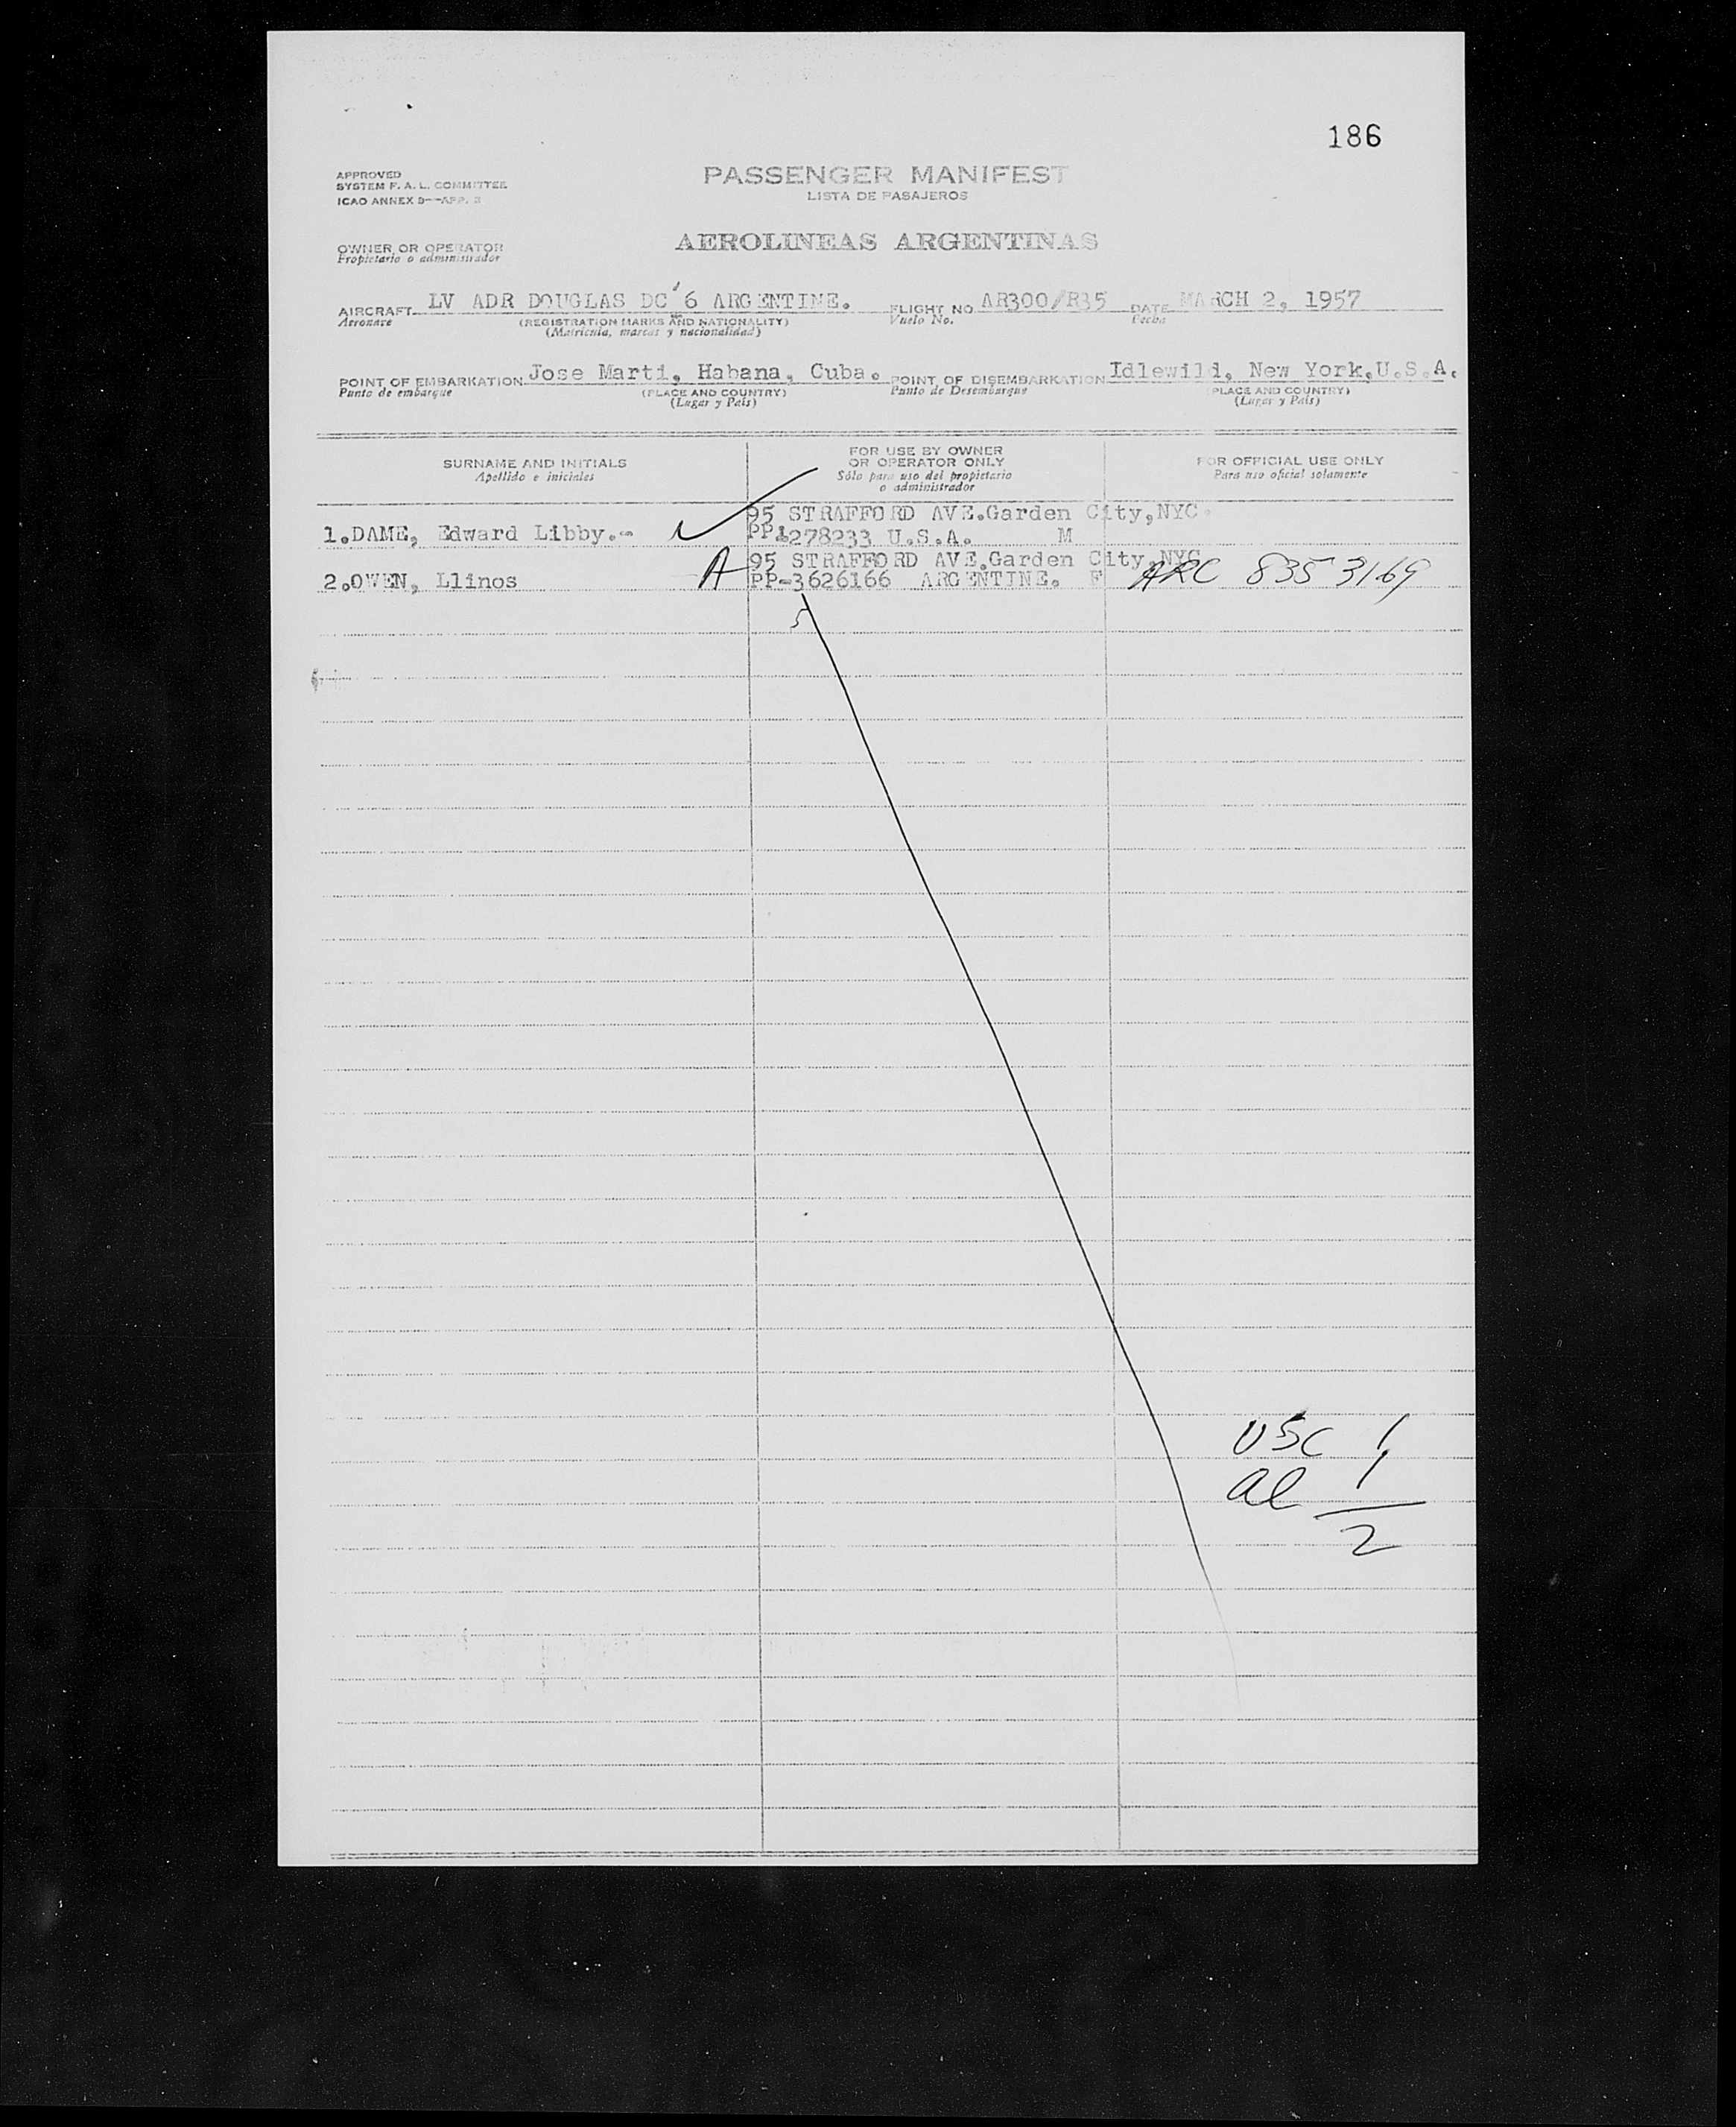 186
APPROVED
SYSTEM F. A. L. COMMITTEE
ICAO ANNEX 9--APP. 3
PASSENGER MANIFEST
LISTA DE PASAJEROS
OWNER OR OPERATOR
Propietario o administrador
AEROLINEAS ARGENTINAS
AIRCRAFT LV ADR DOUGLAS DC'6 ARGENTINE. FLIGHT NO AR300/R35 DATE MARCH 2, 1957
Aeronave (REGISTRATION MARKS AND NATIONALITY) Vuelo No. Fecha
(Matrícula, marcas y nacionalidad)
POINT OF EMBARKATION Jose Marti, Habana, Cuba. POINT OF DISEMBARKATION Idlewild, New York,U.S.A.
Punto de embarque (PLACE AND COUNTRY) Punto de Desembarque (PLACE AND COUNTRY)
(Lugar y País) (Lugar y País)
SURNAME AND INITIALS
Apellido e iniciales
FOR USE BY OWNER
OR OPERATOR ONLY
Sólo para uso del propietario
o administrador
FOR OFFICIAL USE ONLY
Para uso oficial solamente
95 STRAFFORD AVE.Garden City,NYC.
1.DAME, Edward Libby.- PP1278233 U.S.A. M
95 STRAFFORD AVE.Garden City,NYC
2.OWEN, Llinos A PP-3626166 ARGENTINE. F ARC 8353169
5
USC 1
al 1
2